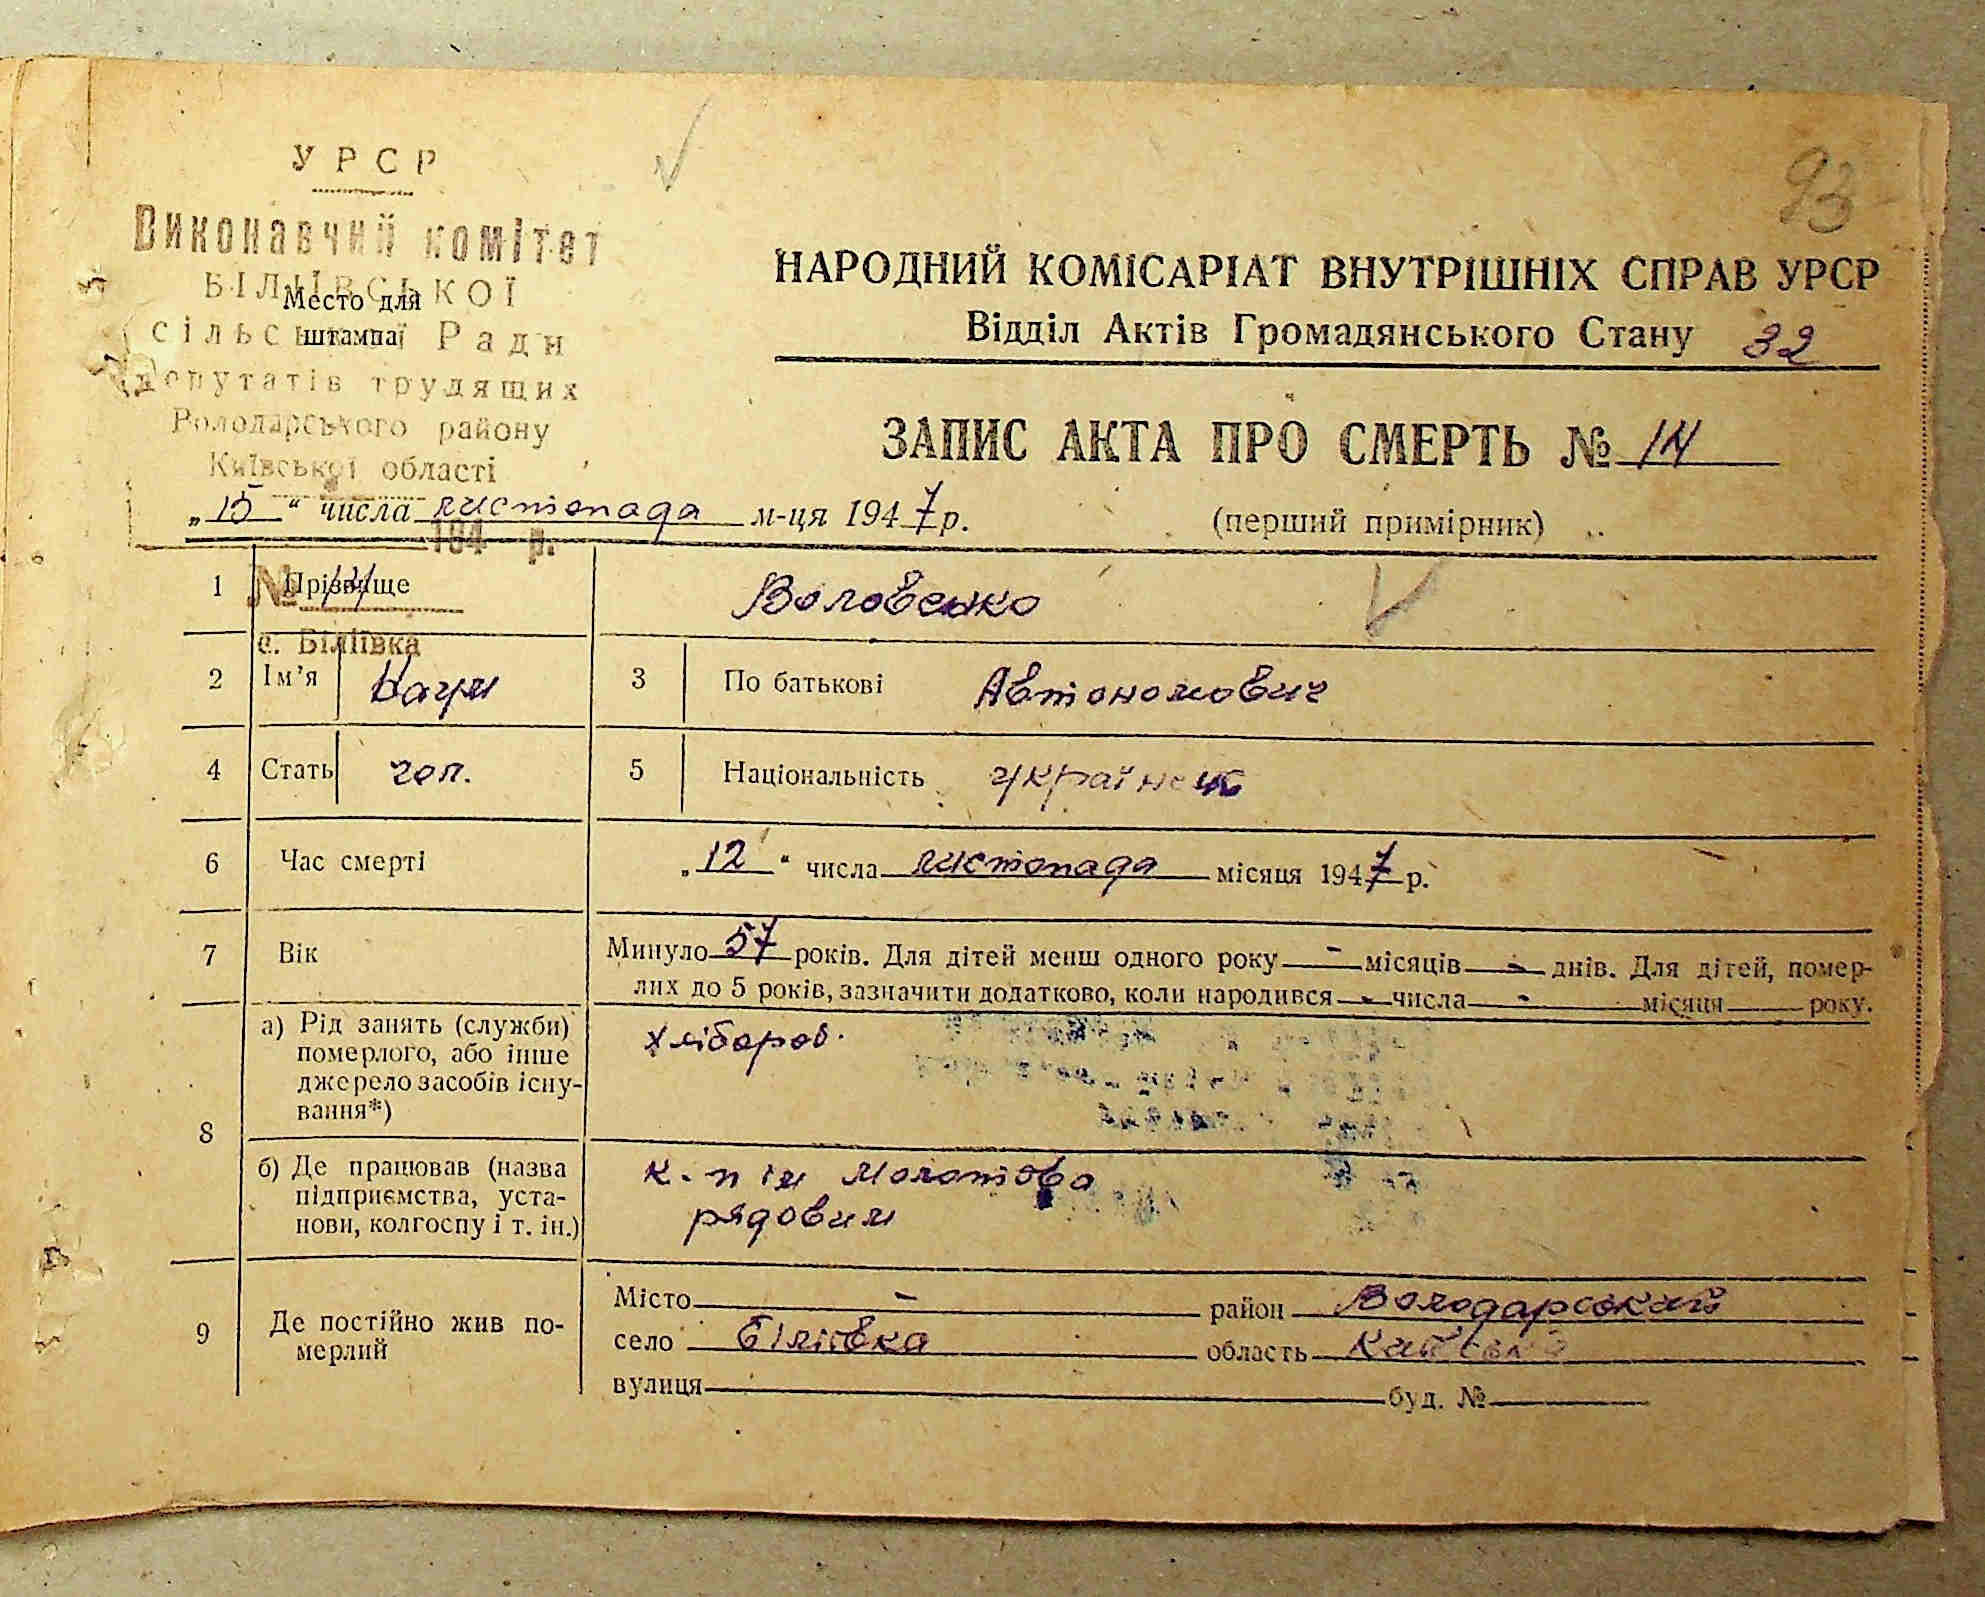 93
УРСР
Виконавчий комітет
БІЛІЇВСЬКОЇ
Место для
штампа
сільської Ради
депутатів трудящих
Володарського району
Київської області
194 р.
№ 14
с. Біліївка
НАРОДНИЙ КОМІСАРІАТ ВНУТРІШНІХ СПРАВ УРСР
Відділ Актів Громадянського Стану 32
ЗАПИС АКТА ПРО СМЕРТЬ № 14
„15“ числа листопада м-ця 1947 р.
(перший примірник)
1 Прізвище Воловенко
2 Ім’я Наум 3 По батькові Автономович
4 Стать чол. 5 Національність українець
6 Час смерті „12“ числа листопада місяця 1947 р.
7 Вік Минуло 57 років. Для дітей менш одного року - місяців - днів. Для дітей, помер-
лих до 5 років, зазначити додатково, коли народився - числа - місяця року.
8 а) Рід занять (служби)
померлого, або інше
джерело засобів існу-
вання*)
хлібороб.
б) Де працював (назва
підприємства, уста-
нови, колгоспу і т. ін.)
к-п ім Молотова
рядовим
9 Де постійно жив по-
мерлий
Місто - район Володарський
село Біліївка область Київська
вулиця буд. №